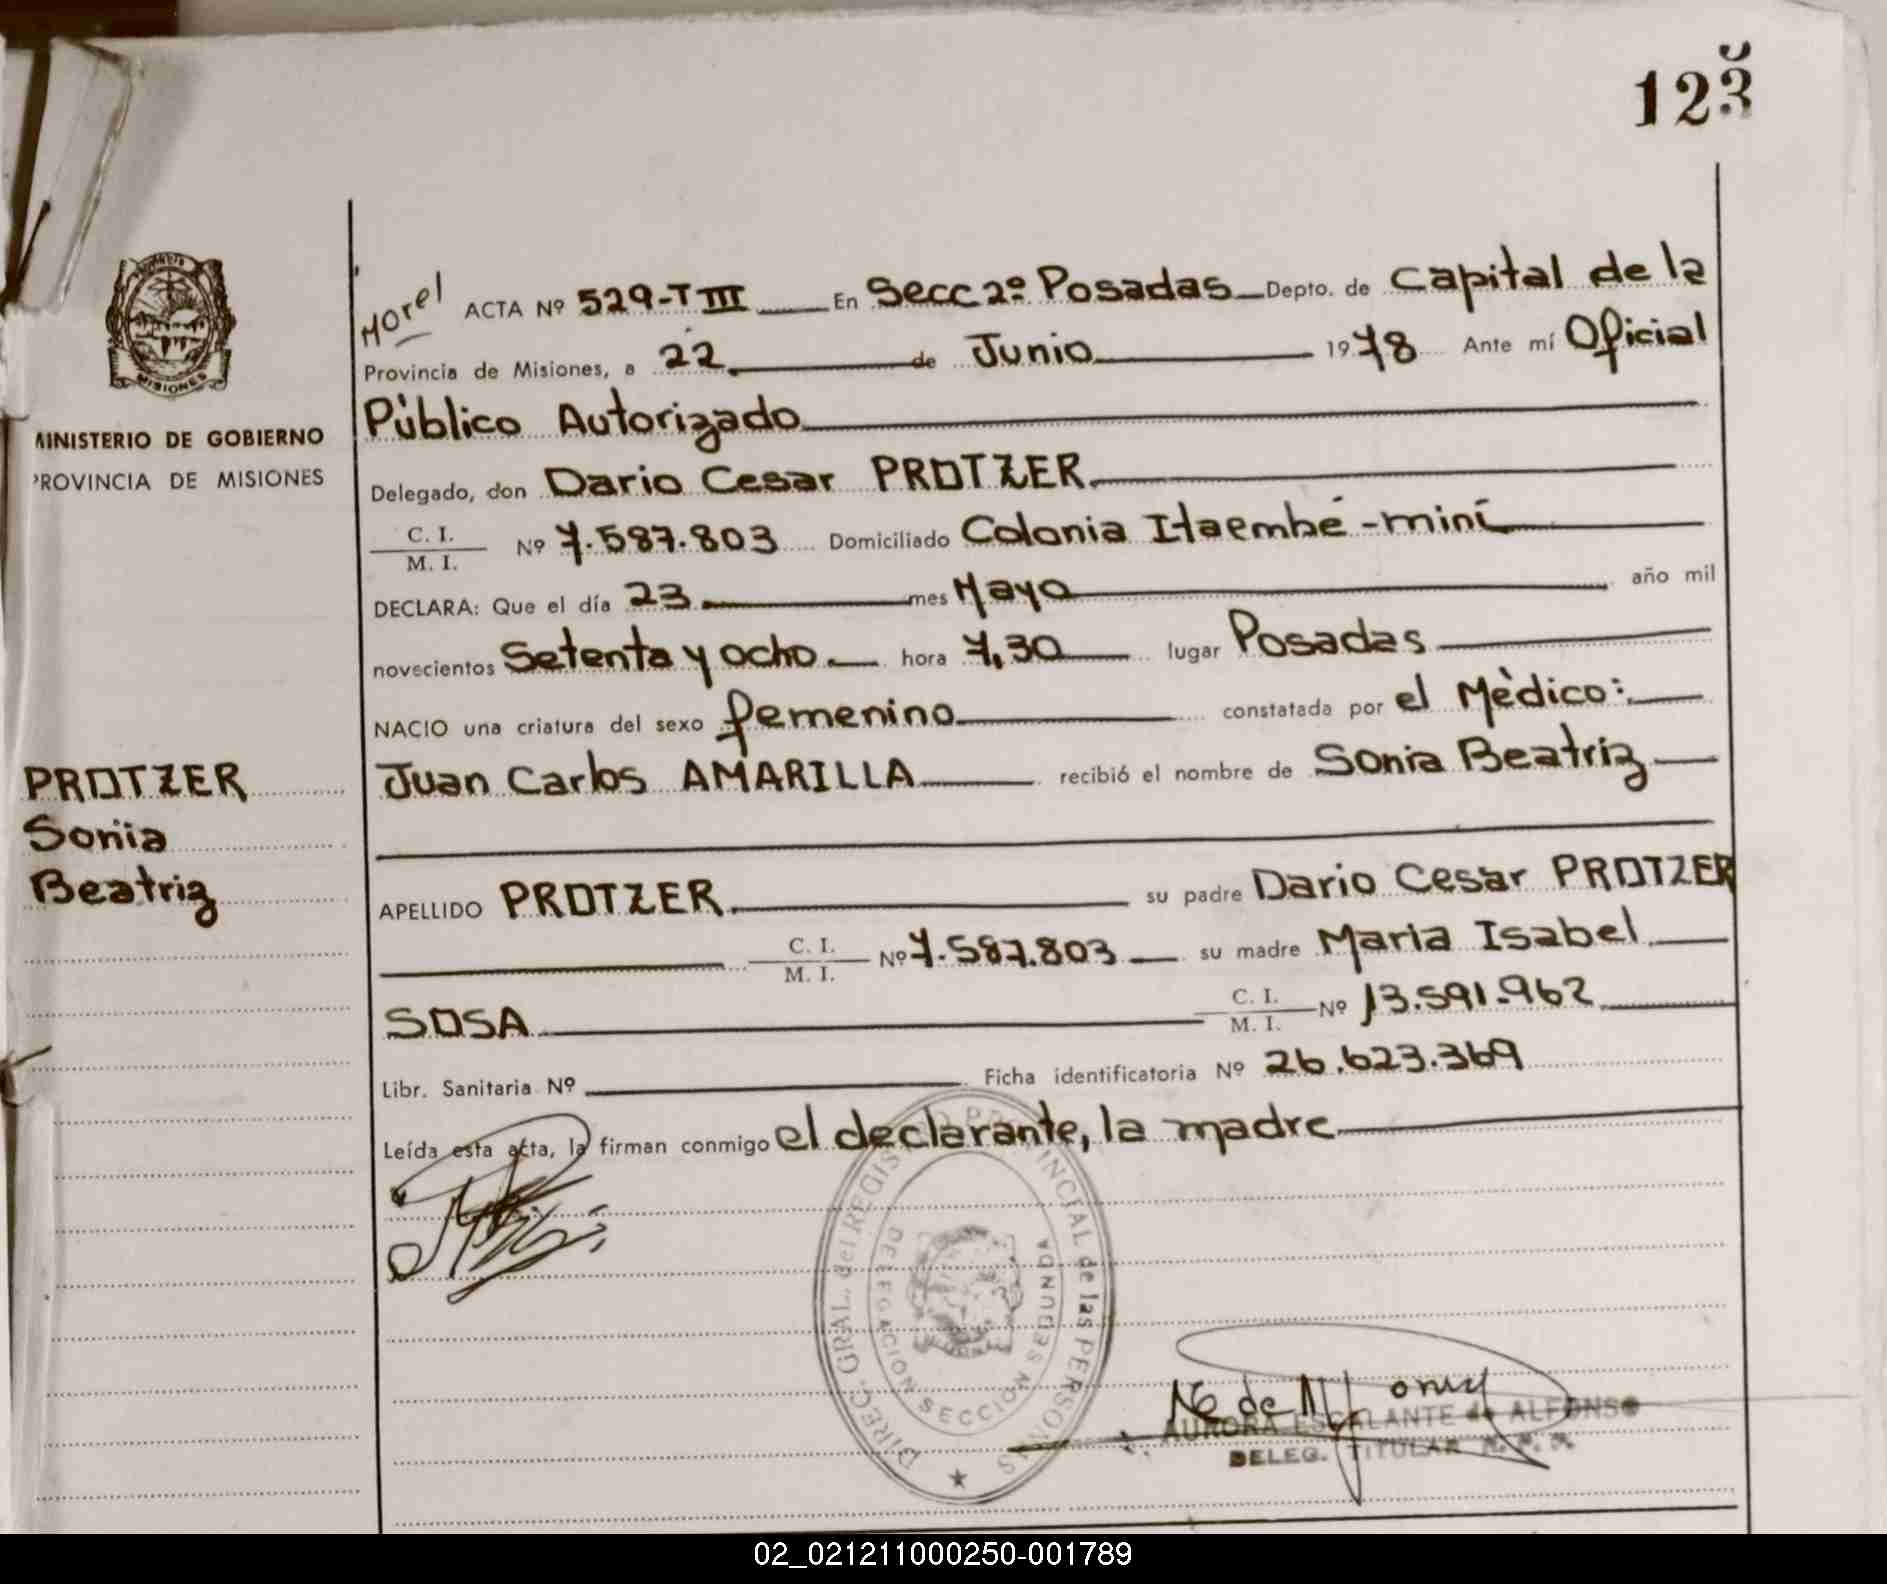 123
Morel ACTA Nº 529-T III En Secc 2º Posadas Depto. de Capital de la
Provincia de Misiones, a 22 de Junio 1978 Ante mí Oficial
Pùblico Autorizado
MINISTERIO DE GOBIERNO
PROVINCIA DE MISIONES
Delegado, don Dario Cesar PROTZER
C. I.
M. I. Nº 7.587.803 Domiciliado Colonia Itaembé-miní
DECLARA: Que el día 23 mes Mayo año mil
novecientos Setenta y ocho hora 7,30 lugar Posadas
NACIO una criatura del sexo femenino constatada por el Mèdico:
Juan Carlos AMARILLA recibió el nombre de Sonia Beatriz
PROTZER
Sonia
Beatriz
APELLIDO PROTZER su padre Dario Cesar PROTZER
C. I.
M. I. Nº 7.587.803 su madre Maria Isabel
SOSA C. I.
M. I. Nº 13.591.962
Libr. Sanitaria Nº Ficha identificatoria Nº 26.623.369
Leída esta acta, la firman conmigo el declarante, la madre
DIREC. GRAL. del REGISTRO PROVINCIAL de las PERSONAS
DELEGACION SECCION SEGUNDA
MISIONES
AURORA ESCALANTE de ALFONSO
DELEG. TITULAR
02_021211000250-001789